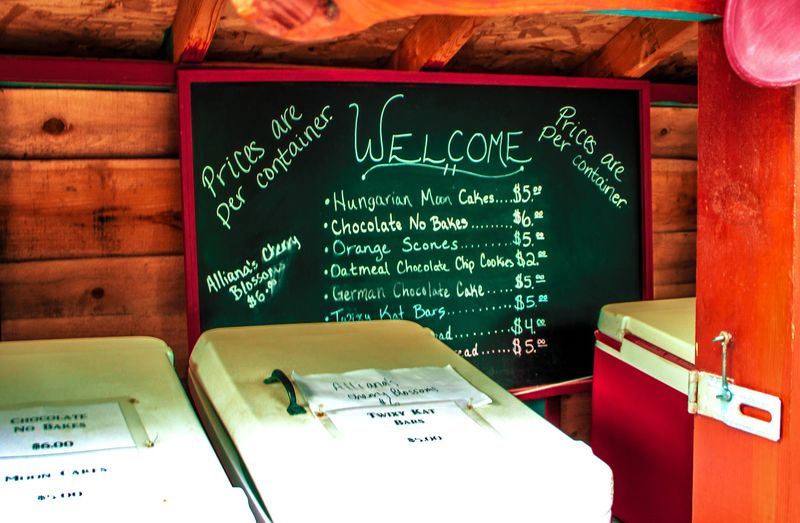 Prices are
Per container.
WELCOME
Prices are
Per container.
• Hungarian Moon Cakes....$5.00
• Chocolate No Bakes.......$6.00
• Orange Scones........$5.00
• Oatmeal Chocolate Chip Cookies $2.00
• German Chocolate Cake......$5.00
• Twixy Kat Bars..........$5.00
$4.00
$5.00
Alliana's Cherry
Blossoms
$6.00
CHOCOLATE
NO BAKES
$6.00
MOON CAKES
$5.00
Alliana's
Cherry Blossoms
TWIXY KAT
BARS
$5.00